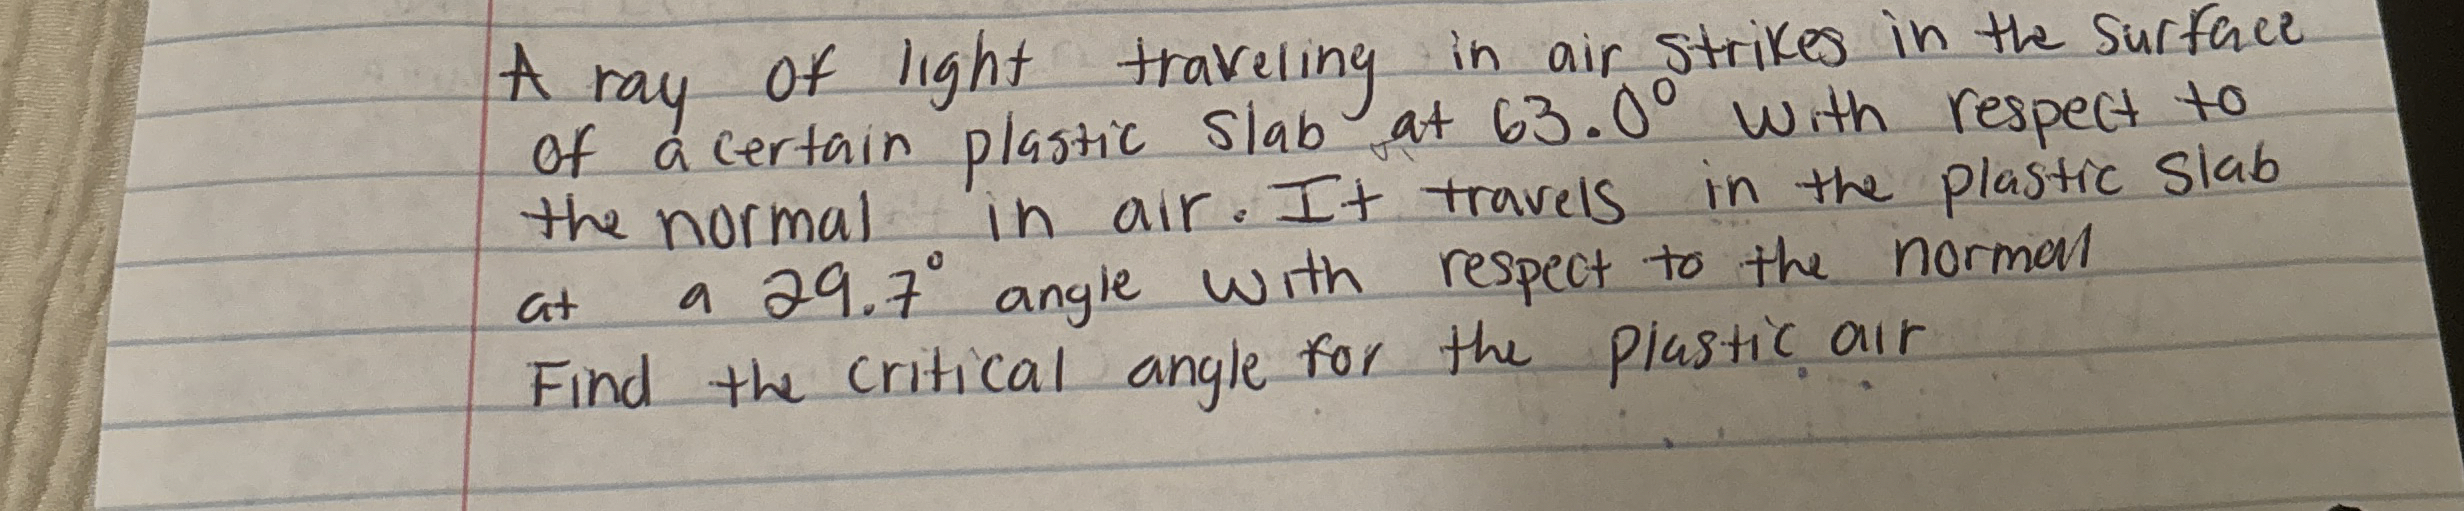 A ray of light traveling in air strikes in the surface
of a certain plastic slab at 63.0° with respect to
the normal in air. It travels in the plastic slab
at a 29.7° angle with respect to the normal
Find the critical angle for the plastic air